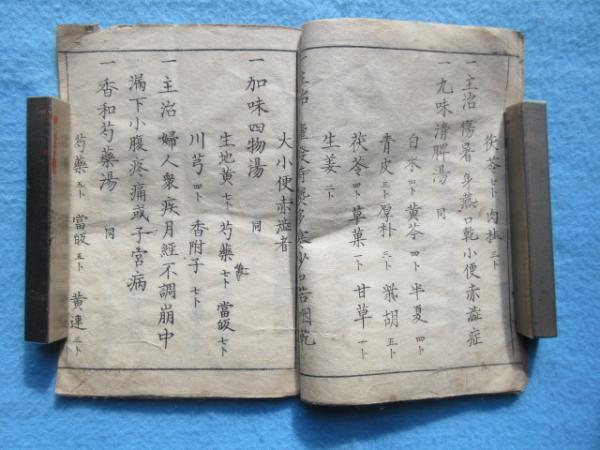 茯苓 七卜 肉桂 三卜
一主治 傷暑身熱口乾小便赤澁症
一九味清脾湯 同
白朮 四卜 黄芩 四卜 半夏 四卜
青皮 三卜 厚朴 三卜 柴胡 五卜
茯苓 四卜 草菓 一卜 甘草 一卜
生姜 二卜
一主治 發時熱多寒少口苦咽乾
大小便赤澁者
一加味四物湯 同
生地黄 七卜 芍藥 七卜 當皈 七卜
川芎 四卜 香附子 七卜
一主治 婦人衆疾月經不調崩中
漏下小腹疼痛或子宮病
一香和芍藥湯 同
芍藥 五卜 當皈 五卜 黄連 二卜